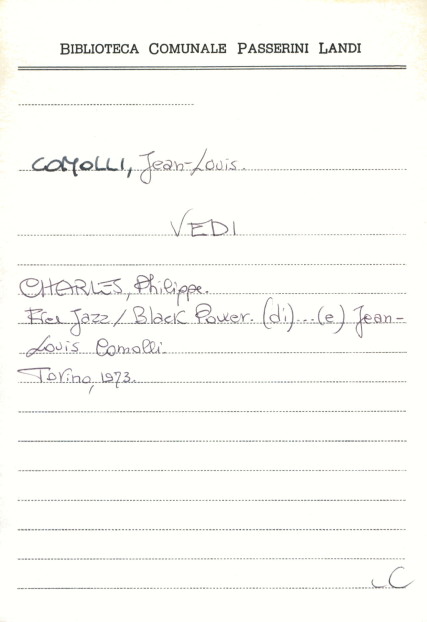 BIBLIOTECA COMUNALE PASSERINI LANDI
COMOLLI, Jean-Louis.
VEDI
CHARLES, Philippe.
Free Jazz / Black Power. (di)...(e) Jean-
Louis Comolli.
Torino, 1973.